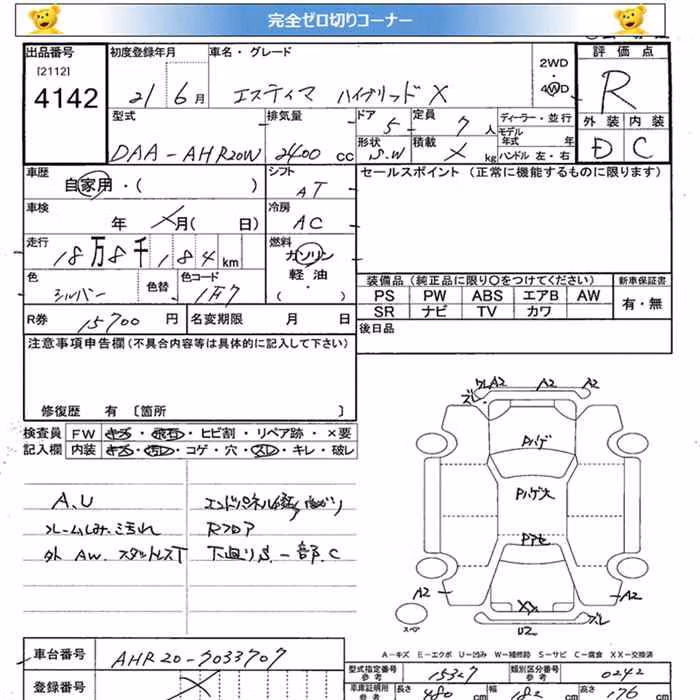 完全ゼロ切りコーナー
出品番号 初度登録年月 車名・グレード 2WD・4WD 評価点
[2112]
4142 21 6月 エスティマ ハイブリッド X R
型式 排気量 ドア 定員 ディーラー・並行 外装 内装
DAA-AHR20W 2400cc 5 7人 モデル年式 年 D C
形状 S.W 積載 kg ハンドル 左・右
車歴 自家用・( ) シフト AT セールスポイント (正常に機能するものに限ります)
車検 年 月( 日) 冷房 AC
走行 18万8千184km 燃料 ガソリン 軽油 ( )
色 シルバー 色替 色コード 1F7
装備品 (純正品に限り〇をつけてください) 新車保証書
PS PW ABS エアB AW 有・無
SR ナビ TV カワ
R券 15700円 名変期限 月 日 後日品
注意事項申告欄 (不具合内容等は具体的に記入して下さい)
修復歴 有 〔箇所 〕
検査員 FW キズ・飛石・ヒビ割・リペア跡・×要
記入欄 内装 キズ・汚レ・コゲ・穴・スレ・キレ・破レ
A.U エンドパネル
Rフロア
外 AW.スタッドレスT 下廻りS.一部.C
A2 A2 A2
ズレ
Pハゲ
Pハゲ大
Pアセ
A2 A2
XX ズレ
U2
スペア
A-キズ E-エクボ U-凹み W-補修跡 S-サビ C-腐食 XX-交換済
車台番号 AHR20-7033707 型式指定番号 参考 15327 類別区分番号 参考 0242
登録番号 車庫証明用 参考 長さ 480cm 幅 182cm 高さ 176cm